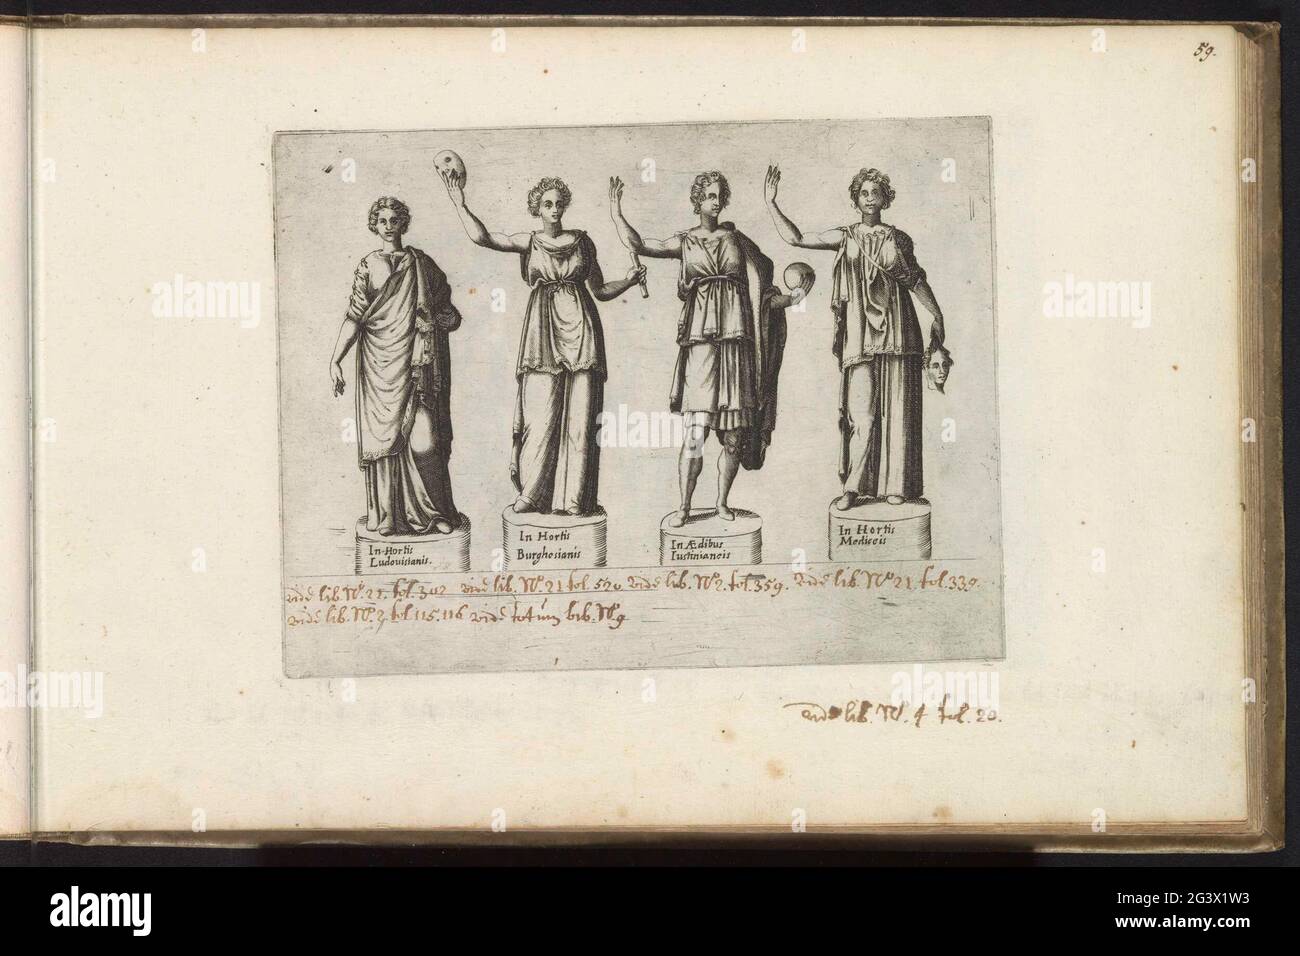 59.
In Hortis
Ludouisianis.
In Hortis
Burghesianis
In Ædibus
Iustinianeis
In Hortis
Mediceis
vide lib. No. 22. fol. 302 vide lib. No. 21 fol. 520 vide lib. No. 2. fol. 359. vide lib. No. 21. fol. 339.
vide lib. No. 2 fol 115. 116 vide totum bib. No. 9
vide lib. No. 4 fol. 20.
alamy
Image ID: 2G3X1W3
www.alamy.com